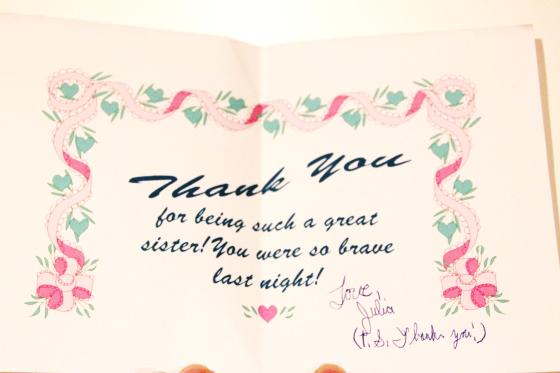 Thank You
for being such a great
sister! You were so brave
last night!
Love,
Julia
(P.S. Thank you!)